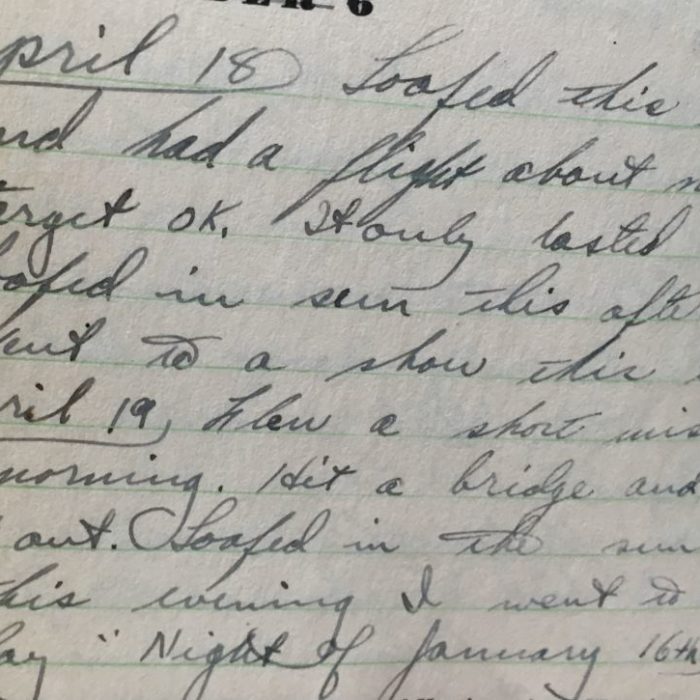 BER 6
pril 18 Loafed this
nd had a flight about
erget OK. It only lasted
oafed in sun this afte
ent to a show this
ril 19, Flew a short mis
morning. Hit a bridge and
out. Loafed in the sun
his evening I went to
lay "Night of January 16th